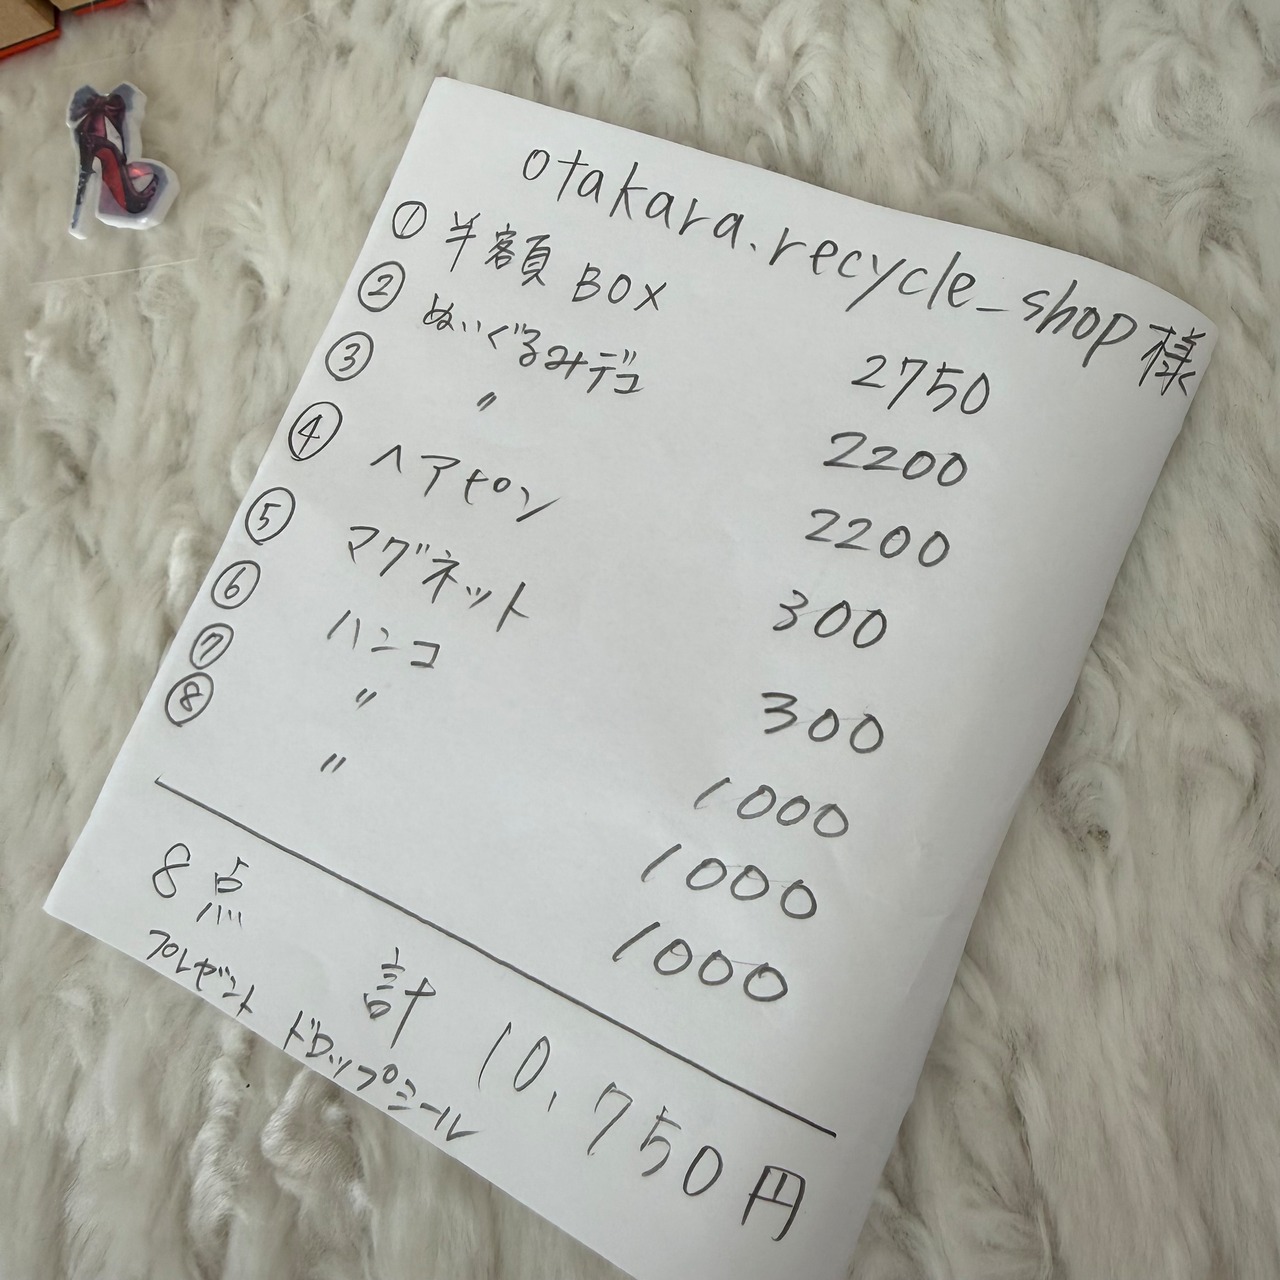 otakara.recycle_shop様
① 半額BOX 2750
② ぬいぐるみデコ 2200
③ 〃 2200
④ ヘアピン 300
⑤ マグネット 300
⑥ ハンコ 1000
⑦ 〃 1000
⑧ 〃 1000
8点 計 10,750円
プレゼント ドロップシール